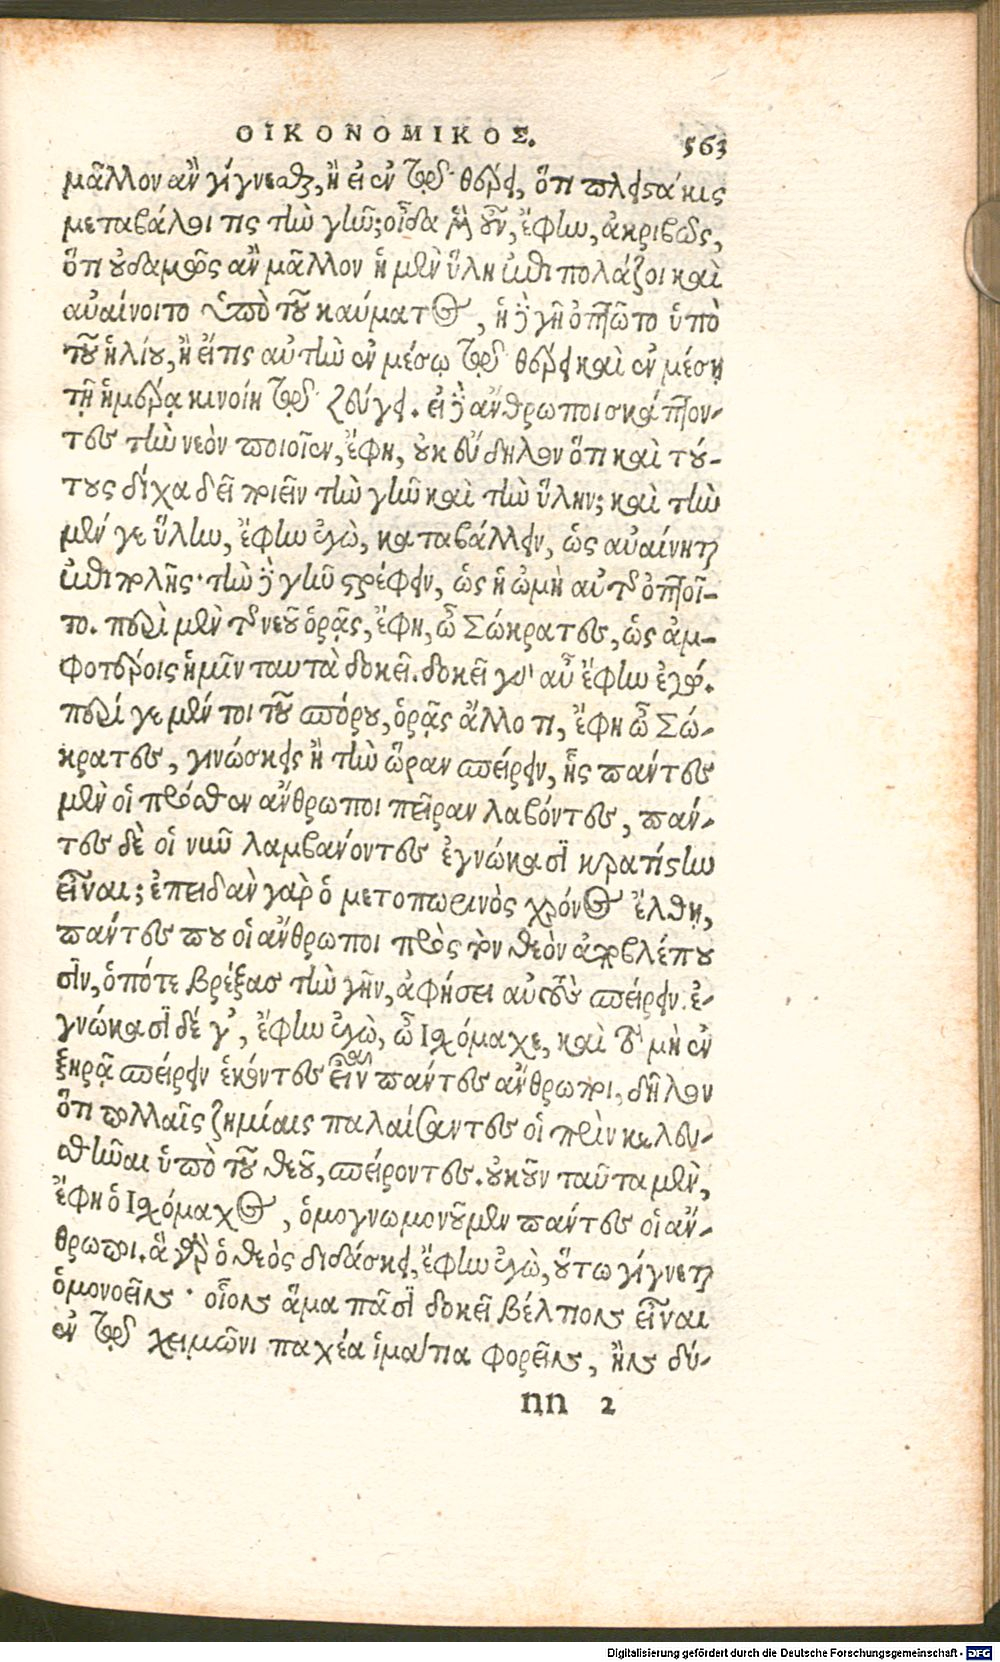 ΟΙΚΟΝΟΜΙΚΟΣ. 563
μᾶλλον ἂν γίγνεσθαι, ἢ εἰ ἐν τῷ θέρει, ὅτι πλειστάκις
μεταβάλοι τις τὴν γῆν; οἶδα μὲν οὖν, ἔφην, ἀκριβῶς,
ὅτι οὐδαμῶς ἂν μᾶλλον ἡ μὲν ὕλη ἐπιπολάζοι καὶ
αὐαίνοιτο ὑπὸ τοῦ καύματος, ἡ δὲ γῆ ὀπτῷτο ὑπὸ
τοῦ ἡλίου, ἢ εἴ τις αὐτὴν ἐν μέσῳ τῷ θέρει καὶ ἐν μέσῃ
τῇ ἡμέρᾳ κινοίη τῷ ζεύγει. εἰ δὲ ἄνθρωποι σκάπτον-
τες τὴν νεὸν ποιοῖεν, ἔφη, οὐκ εὔδηλον ὅτι καὶ τού-
τους δίχα δεῖ ποιεῖν τὴν γῆν καὶ τὴν ὕλην; καὶ τὴν
μέν γε ὕλην, ἔφην ἐγὼ, καταβάλλειν, ὡς αὐαίνηται
ἐπιπολῆς· τὴν δὲ γῆν στρέφειν, ὡς ἡ ὠμὴ αὐτοῦ ὀπτοῖ-
το. περὶ μὲν τοῦ νεοῦ ὁρᾷς, ἔφη, ὦ Σώκρατες, ὡς ἀμ-
φοτέροις ἡμῖν ταυτὰ δοκεῖ. δοκεῖ γὰρ αὖ ἔφην ἐγώ.
περί γε μέν τοι τοῦ σπόρου, ὁρᾷς ἄλλο τι, ἔφη ὦ Σώ-
κρατες, γινώσκεις ἢ τὴν ὥραν σπείρειν, ἧς πάντες
μὲν οἱ πρόσθεν ἄνθρωποι πεῖραν λαβόντες, πάν-
τες δὲ οἱ νῦν λαμβανόντες ἐγνώκασι κρατίστην
εἶναι; ἐπειδὰν γὰρ ὁ μετοπωρινὸς χρόνος ἔλθῃ,
πάντες που οἱ ἄνθρωποι πρὸς τὸν θεὸν ἀποβλέπου
σιν, ὁπότε βρέξας τὴν γῆν, ἀφήσει αὐτοὺς σπείρειν. ἐ-
γνώκασι δέ γ', ἔφην ἐγὼ, ὦ Ἰσχόμαχε, καὶ τὸ μὴ ἐν
ξηρᾷ σπείρειν ἑκόντες εἶναι πάντες ἄνθρωποι, δῆλον
ὅτι πολλαῖς ζημίαις παλαίσαντες οἱ πρὶν κελευ-
σθῆναι ὑπὸ τοῦ θεοῦ, σπείροντες. οὐκοῦν ταῦτα μὲν,
ἔφη ὁ Ἰσχόμαχος, ὁμογνωμονοῦμεν πάντες οἱ ἄν-
θρωποι. ἃ γὰρ ὁ θεὸς διδάσκει, ἔφην ἐγὼ, οὕτω γίγνεται
ὁμονοεῖν· οἷον ἅμα πᾶσι δοκεῖ βέλτιον εἶναι
ἐν τῷ χειμῶνι παχέα ἱμάτια φορεῖν, ἢν δύ-
nn 2
Digitalisierung gefördert durch die Deutsche Forschungsgemeinschaft - DFG